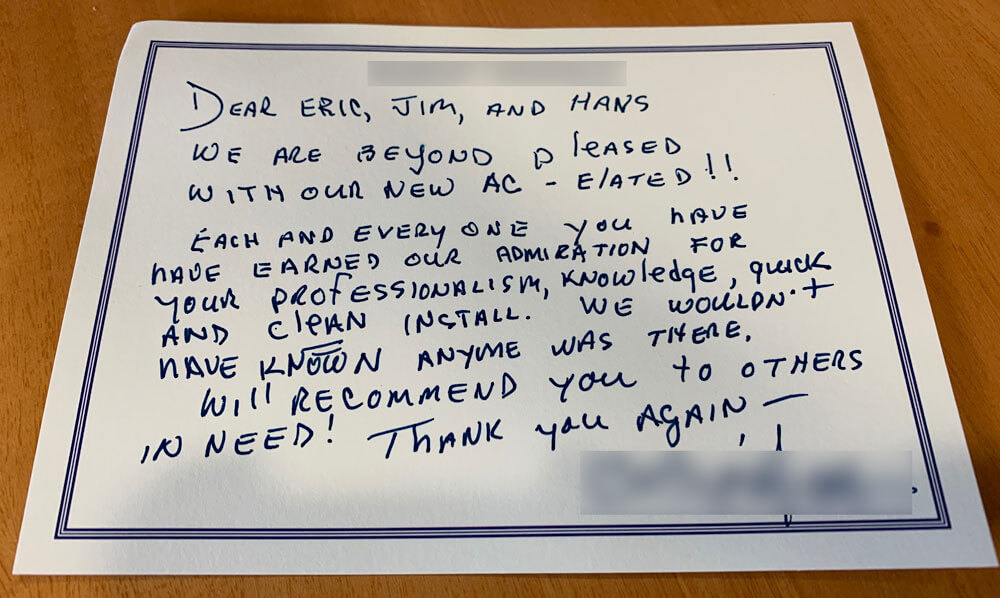 DEAR ERIC, JIM, AND HANS
WE ARE BEYOND PLEASED
WITH OUR NEW AC - ELATED!!
EACH AND EVERY ONE YOU HAVE
HAVE EARNED OUR ADMIRATION FOR
YOUR PROFESSIONALISM, KNOWLEDGE, QUICK
AND CLEAN INSTALL. WE WOULDN'T
HAVE KNOWN ANYONE WAS THERE.
WILL RECOMMEND YOU TO OTHERS
IN NEED! THANK YOU AGAIN —